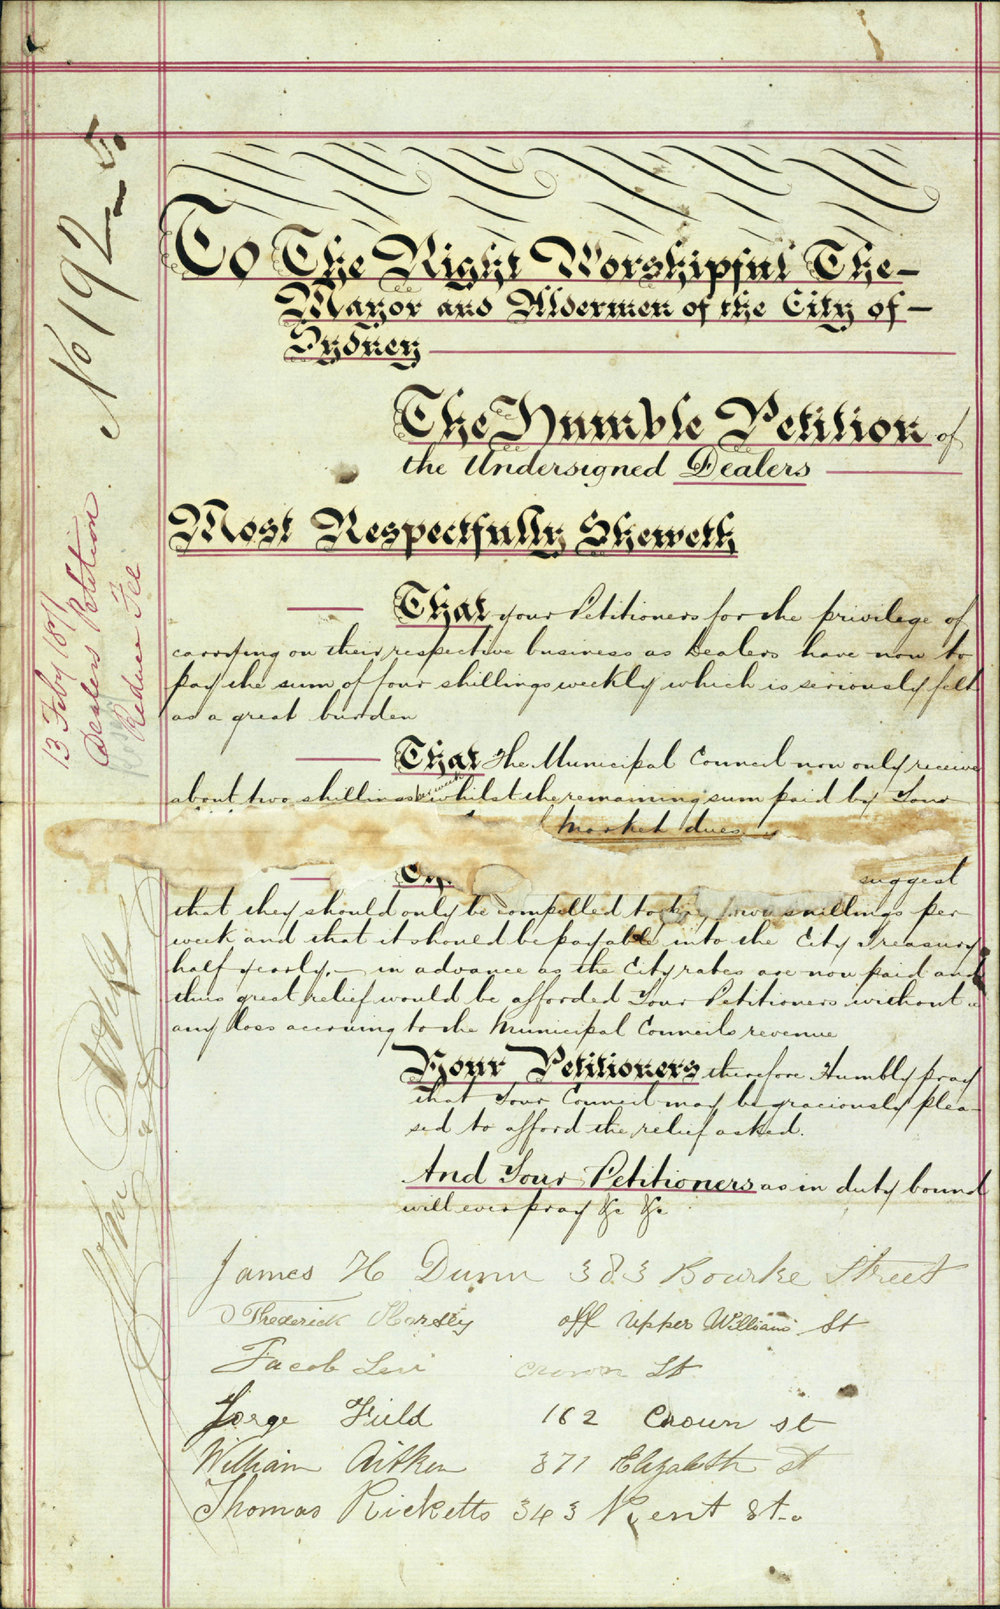 No 192-5
13 Feby 1877
Dealers Petition
Reduce Fee
To The Right Worshipful The
Mayor and Aldermen of the City of
Sydney
The Humble Petition of
the Undersigned Dealers
Most Respectfully Sheweth
That your Petitioners for the privilege of
carrying on their respective business as Dealers have now to
pay the sum of four shillings weekly which is seriously felt
as a great burden
That the Municipal Council now only receive
about two shillings whilst the remaining sum paid by Your
Market dues
suggest
that they should only be compelled to two shillings per
week and that it should be payable into the City Treasury
half yearly. in advance as the City rates are now paid and
thus great relief would be afforded Your Petitioners without
any loss accruing to the Municipal Councils revenue
Your Petitioners therefore Humbly pray
that Your Council may be graciously plea-
sed to afford the relief asked.
And Your Petitioners as in duty bound
will ever pray &c &c
James H Dunn 383 Bourke Street
Frederick Horsley off Upper William St
Jacob Levi crown St
Jorge Field 162 Crown st
William Aitken 371 Elizabeth st
Thomas Ricketts 343 Kent St.